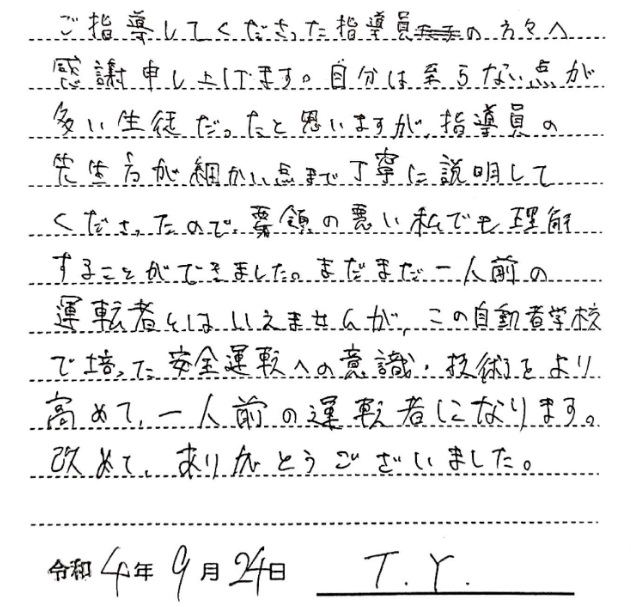 ご指導してくださった指導員の方々へ
感謝申し上げます。自分は至らない点が
多い生徒だったと思いますが、指導員の
先生方が細かい点まで丁寧に説明して
くださったので、要領の悪い私でも理解
することができました。まだまだ一人前の
運転者とはいえませんが、この自動者学校
で培った安全運転への意識・技術をより
高めて、一人前の運転者になります。
改めて、ありがとうございました。
令和4年9月24日 T.Y.